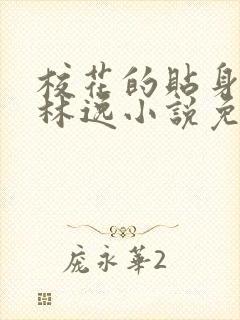 校花的貼身
林逸小說免
庞永華2